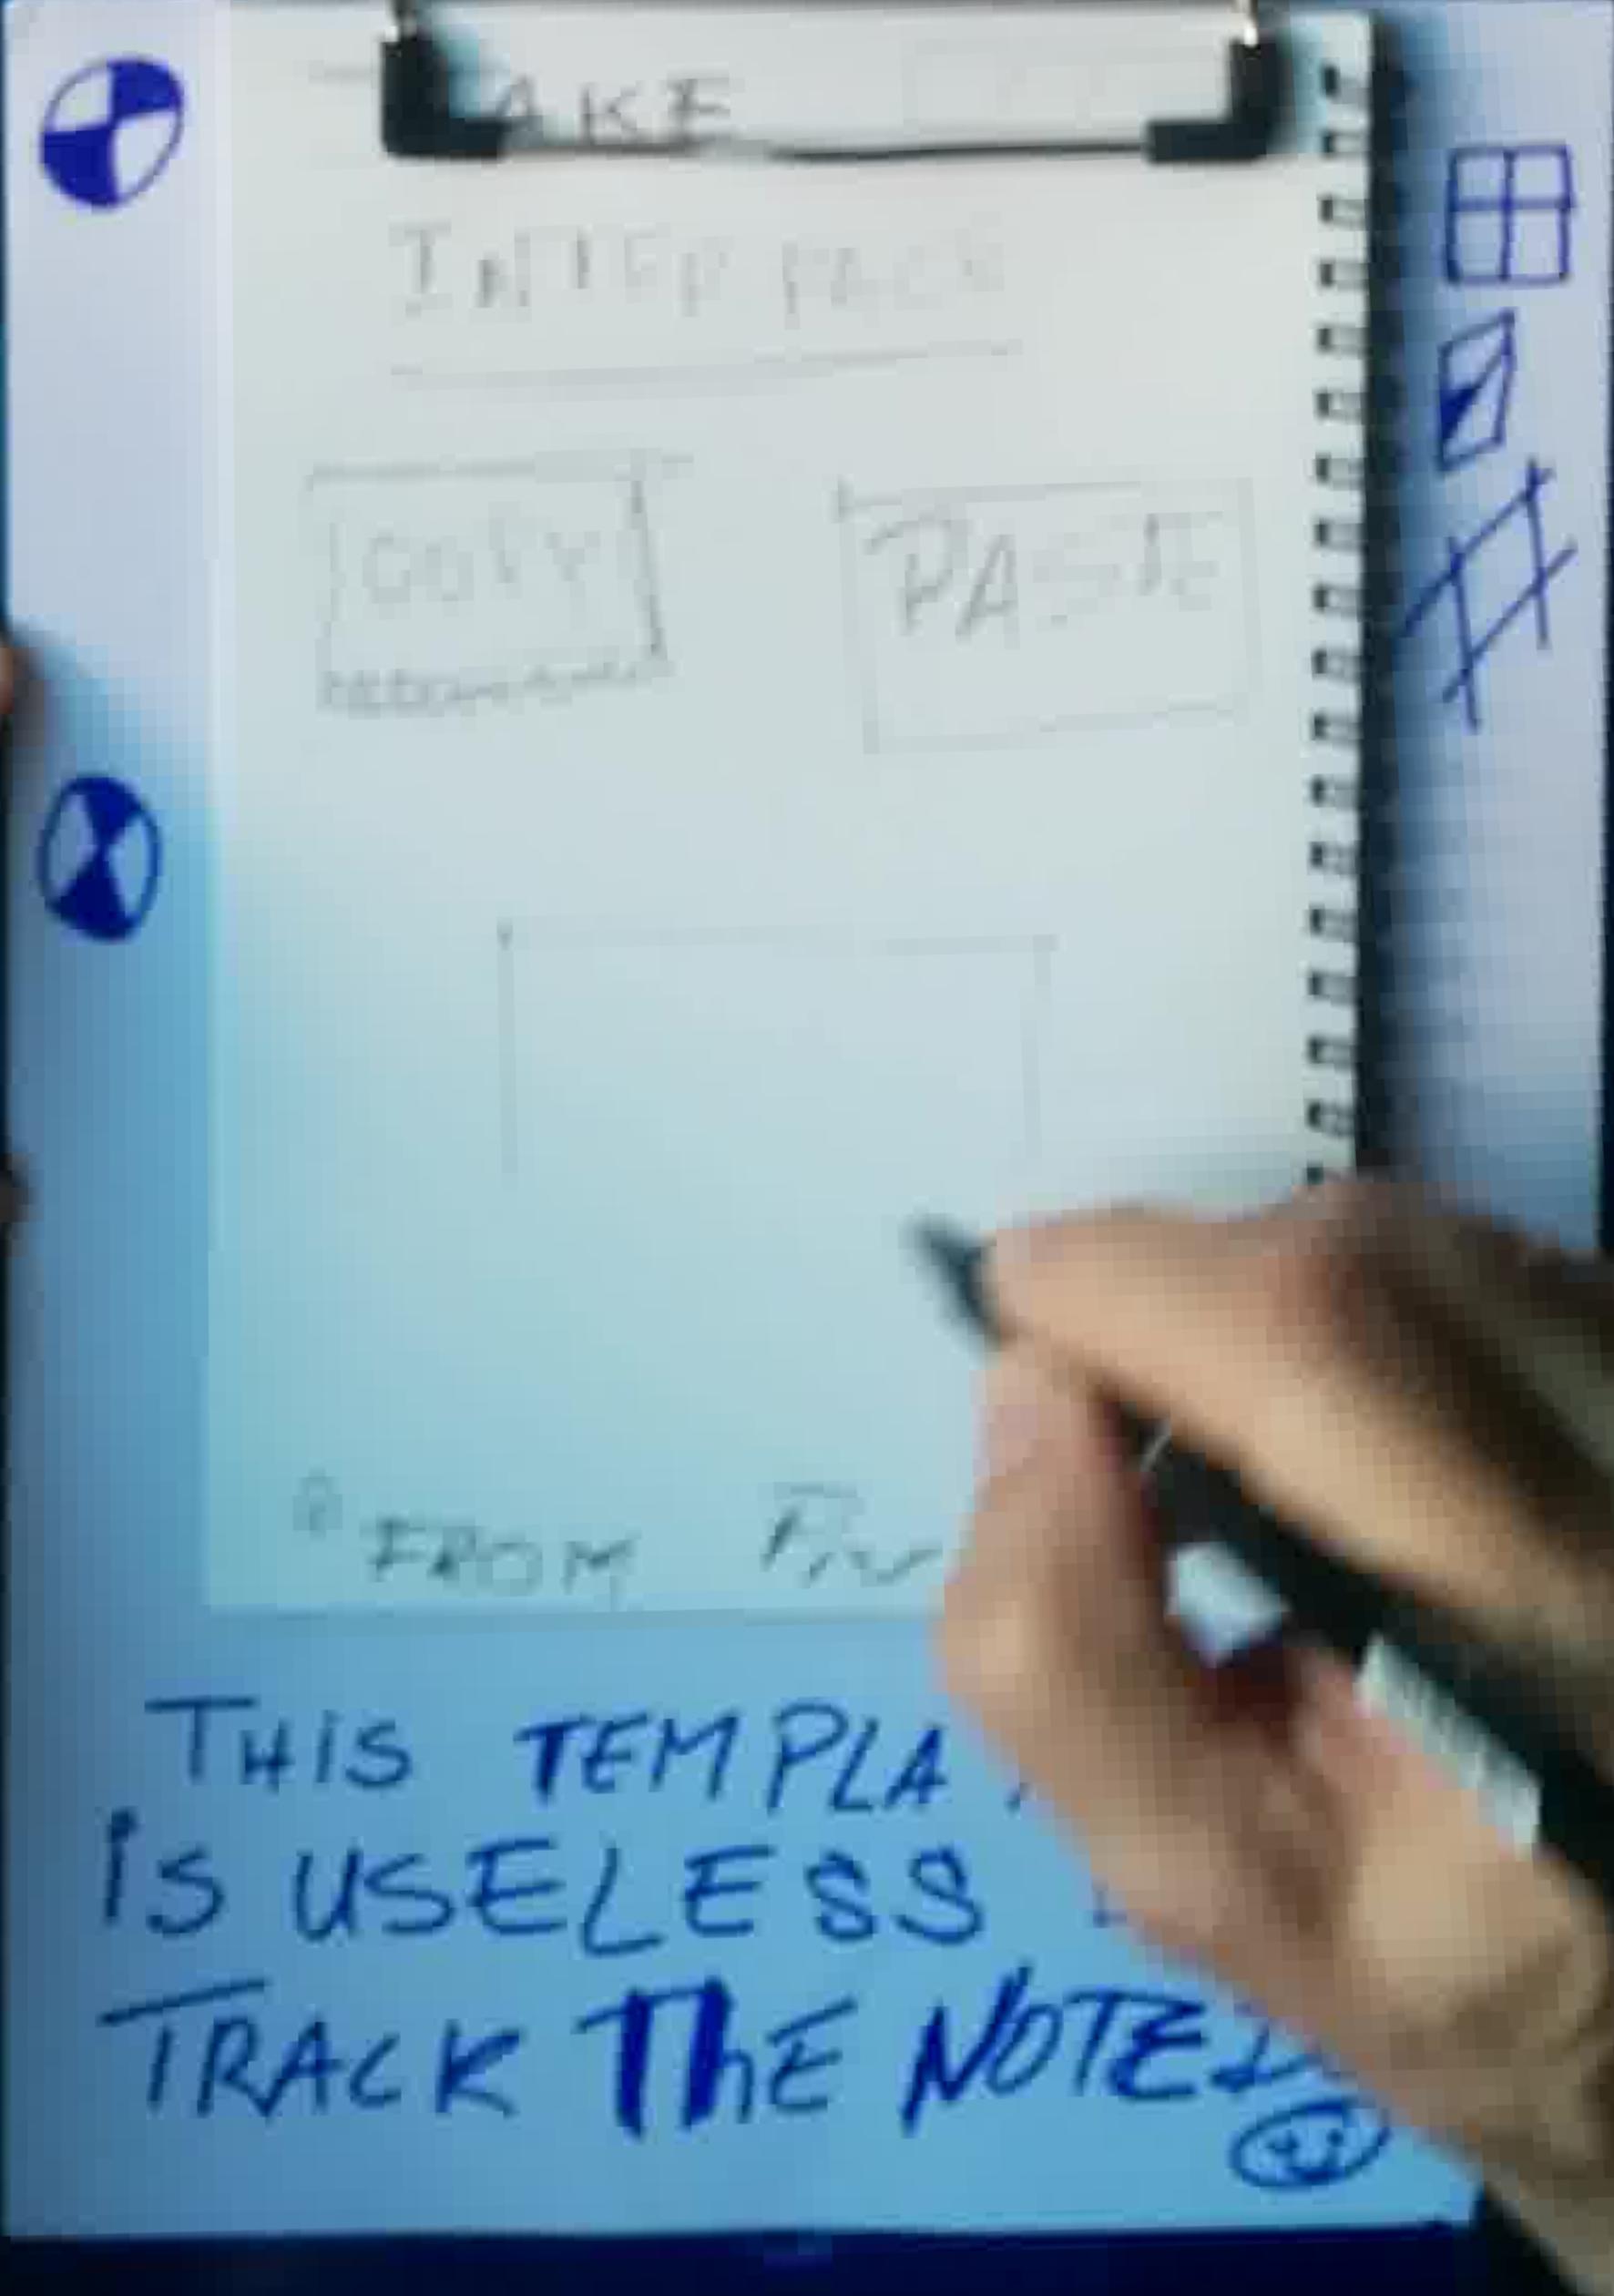 AKE
INTERFACE
COPY
PASTE
FROM
THIS TEMPLA
iS USELESS
TRACK ThE NOTES